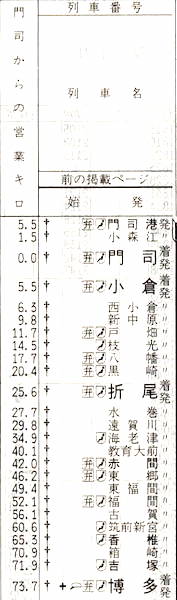 列車番号
門司からの営業キロ
列車名
前の掲載ページ
始発
5.5 † 弁 門司港発
1.5 † 小森江〃
0.0 † 弁 門司 着発
5.5 † 弁 小倉 着発
6.3 † 西小倉〃
9.8 † 新中原〃
11.7 † 弁 戸畑〃
14.5 † 枝光〃
17.7 † 弁 八幡〃
20.4 † 弁 黒崎〃
25.6 † 弁 折尾 着発
27.7 水巻〃
29.8 遠賀川〃
34.9 海老津〃
40.1 教育大前〃
42.0 弁 赤間〃
46.2 弁 東郷〃
49.4 東福間〃
52.1 弁 福間〃
56.1 古賀〃
60.6 筑前新宮〃
65.3 香椎〃
70.9 箱崎〃
71.9 吉塚〃
73.7 † 弁 博多 着発